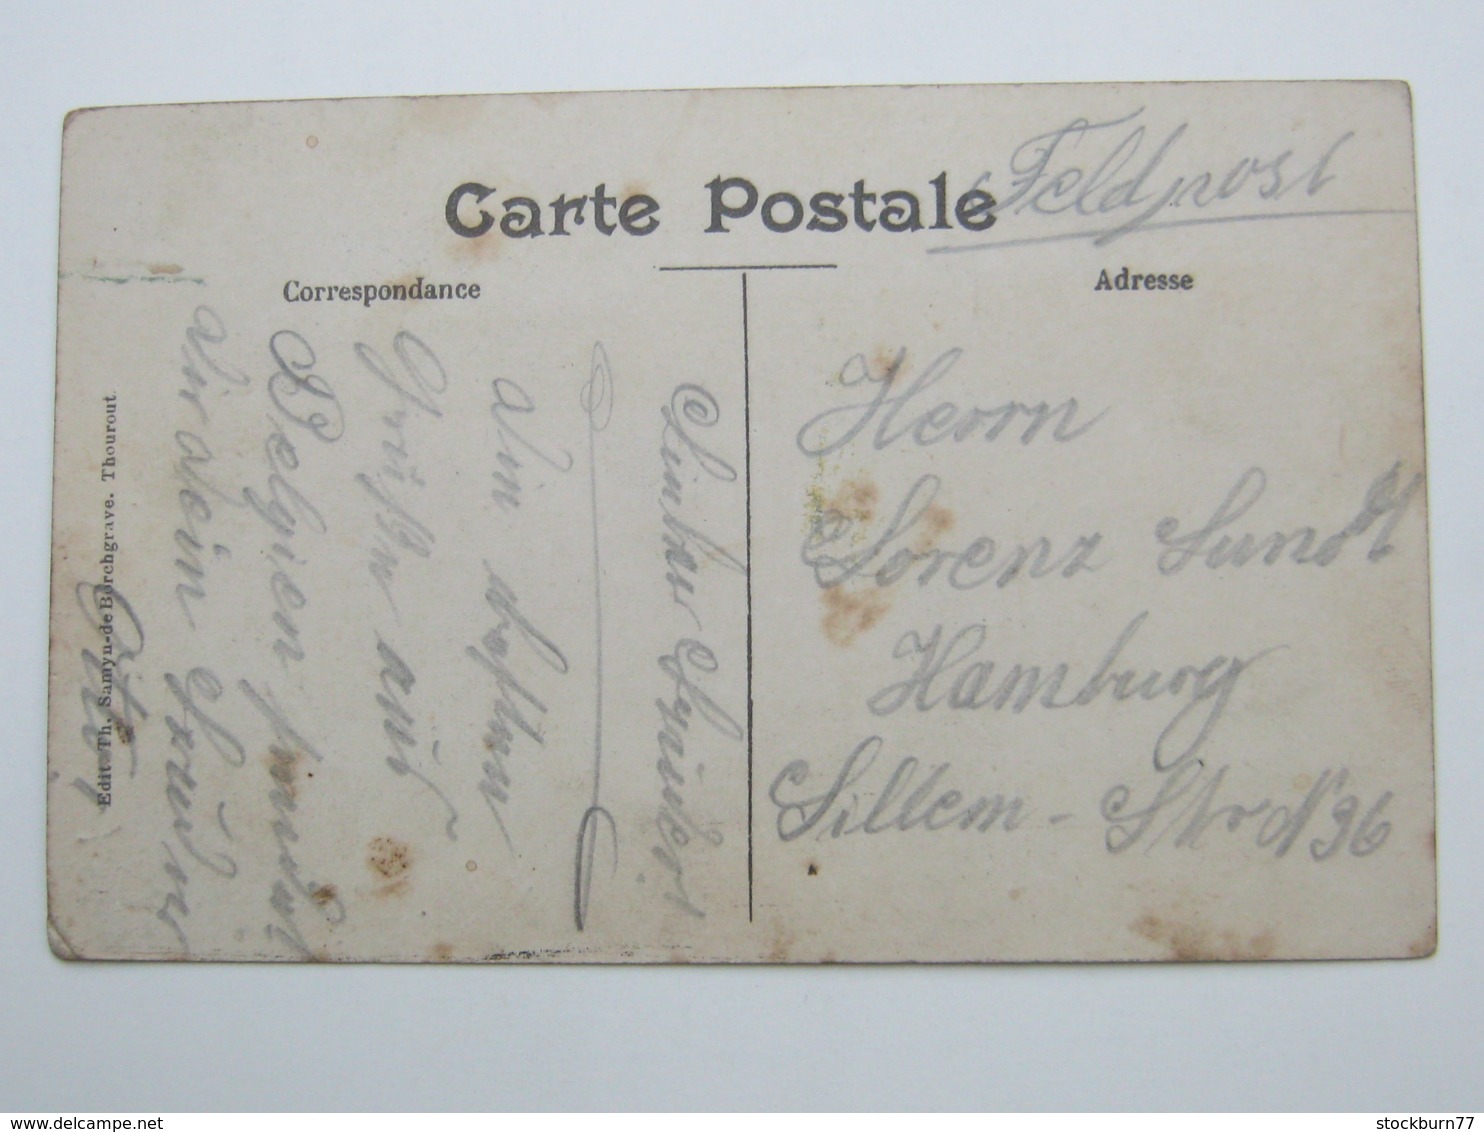 Carte Postale
Feldpost
Correspondance
Adresse
Edit. Th. Samyn-de Borchgrave. Thourout.
Lieber
Grüßen aus
Belgien sendet
dir dein Freund
Herrn
Lorenz Sundt
Hamburg
Sillem-Str No 36
stockburn77